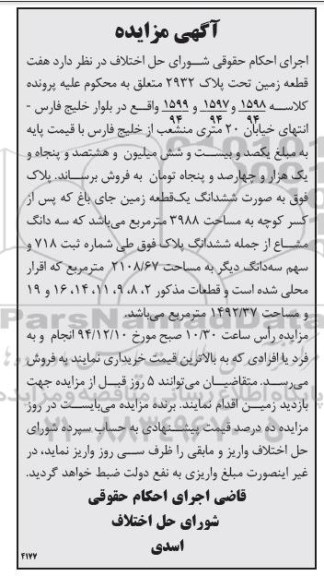 آگهی مزایده
اجرای احکام حقوقی شورای حل اختلاف در نظر دارد هفت
قطعه زمین تحت پلاک ۲۹۳۲ متعلق به محکوم علیه پرونده
کلاسه ۱۵۹۸/۹۴ و ۱۵۹۷/۹۴ و ۱۵۹۹/۹۴ واقع در بلوار خلیج فارس -
انتهای خیابان ۲۰ متری منشعب از خلیج فارس با قیمت پایه
به مبلغ یکصد و بیست و شش میلیون و هشتصد و پنجاه و
یک هزار و چهارصد و پنجاه تومان به فروش برساند. پلاک
فوق به صورت ششدانگ یک‌قطعه زمین جای باغ که پس از
کسر کوچه به مساحت ۳۹۸۸ مترمربع می‌باشد که سه دانگ
مشاع از جمله ششدانگ پلاک فوق طی شماره ثبت ۷۱۸ و
سهم سه‌دانگ دیگر به مساحت ۲۱۰۸/۶۷ مترمربع که اقرار
محلی شده است و قطعات مذکور ۲، ۸، ۹، ۱۱، ۱۴، ۱۶ و ۱۹
و مساحت ۱۴۹۲/۳۷ مترمربع می‌باشد.
مزایده رأس ساعت ۱۰/۳۰ صبح مورخ ۹۴/۱۲/۱۰ انجام و به
فرد یا افرادی که به بالاترین قیمت خریداری نمایند به فروش
می‌رسد. متقاضیان می‌توانند ۵ روز قبل از مزایده جهت
بازدید زمین اقدام نمایند. برنده مزایده می‌بایست در روز
مزایده ده درصد قیمت پیشنهادی به حساب سپرده شورای
حل اختلاف واریز و مابقی را ظرف سی روز واریز نماید، در
غیر اینصورت مبلغ واریزی به نفع دولت ضبط خواهد گردید.
قاضی اجرای احکام حقوقی
شورای حل اختلاف
اسدی
۴۱۷۷